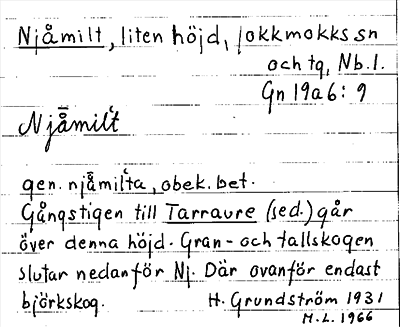 Njåmilt, liten höjd, Jokkmokks sn
och tg, Nb. l.
Gn 19a6: 9
Njå̄milt́
gen. njå̄milt́a, obek. bet.
Gångstigen till Tarraure (sed.) går
över denna höjd. Gran- och tallskogen
slutar nedanför Nj. Där ovanför endast
björkskog. H. Grundström 1931
M.L. 1966